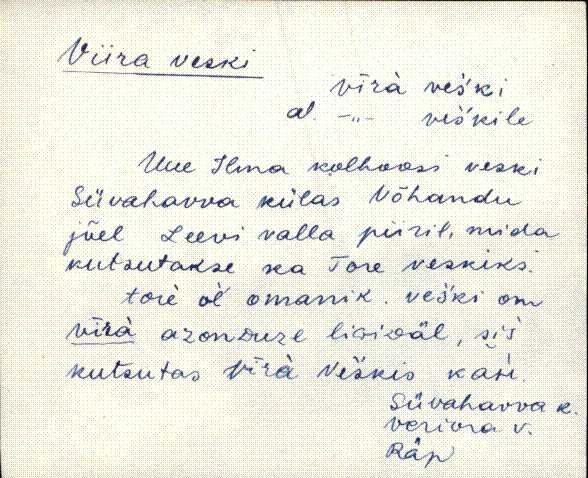 Viira veski
vīrà veški
al. -„- veškile
Uue Ilma kolhoosi veski
Süvahavva külas Võhandu
jõel Leevi valla piiril, mida
kutsutakse ka Tore veskiks.
torè oĺ omanik. veški om
vīrà azonduze liġidäl, sìš
kutsutas vīrà veškis kah.
Süvahavva k.
Veriora v.
Räp